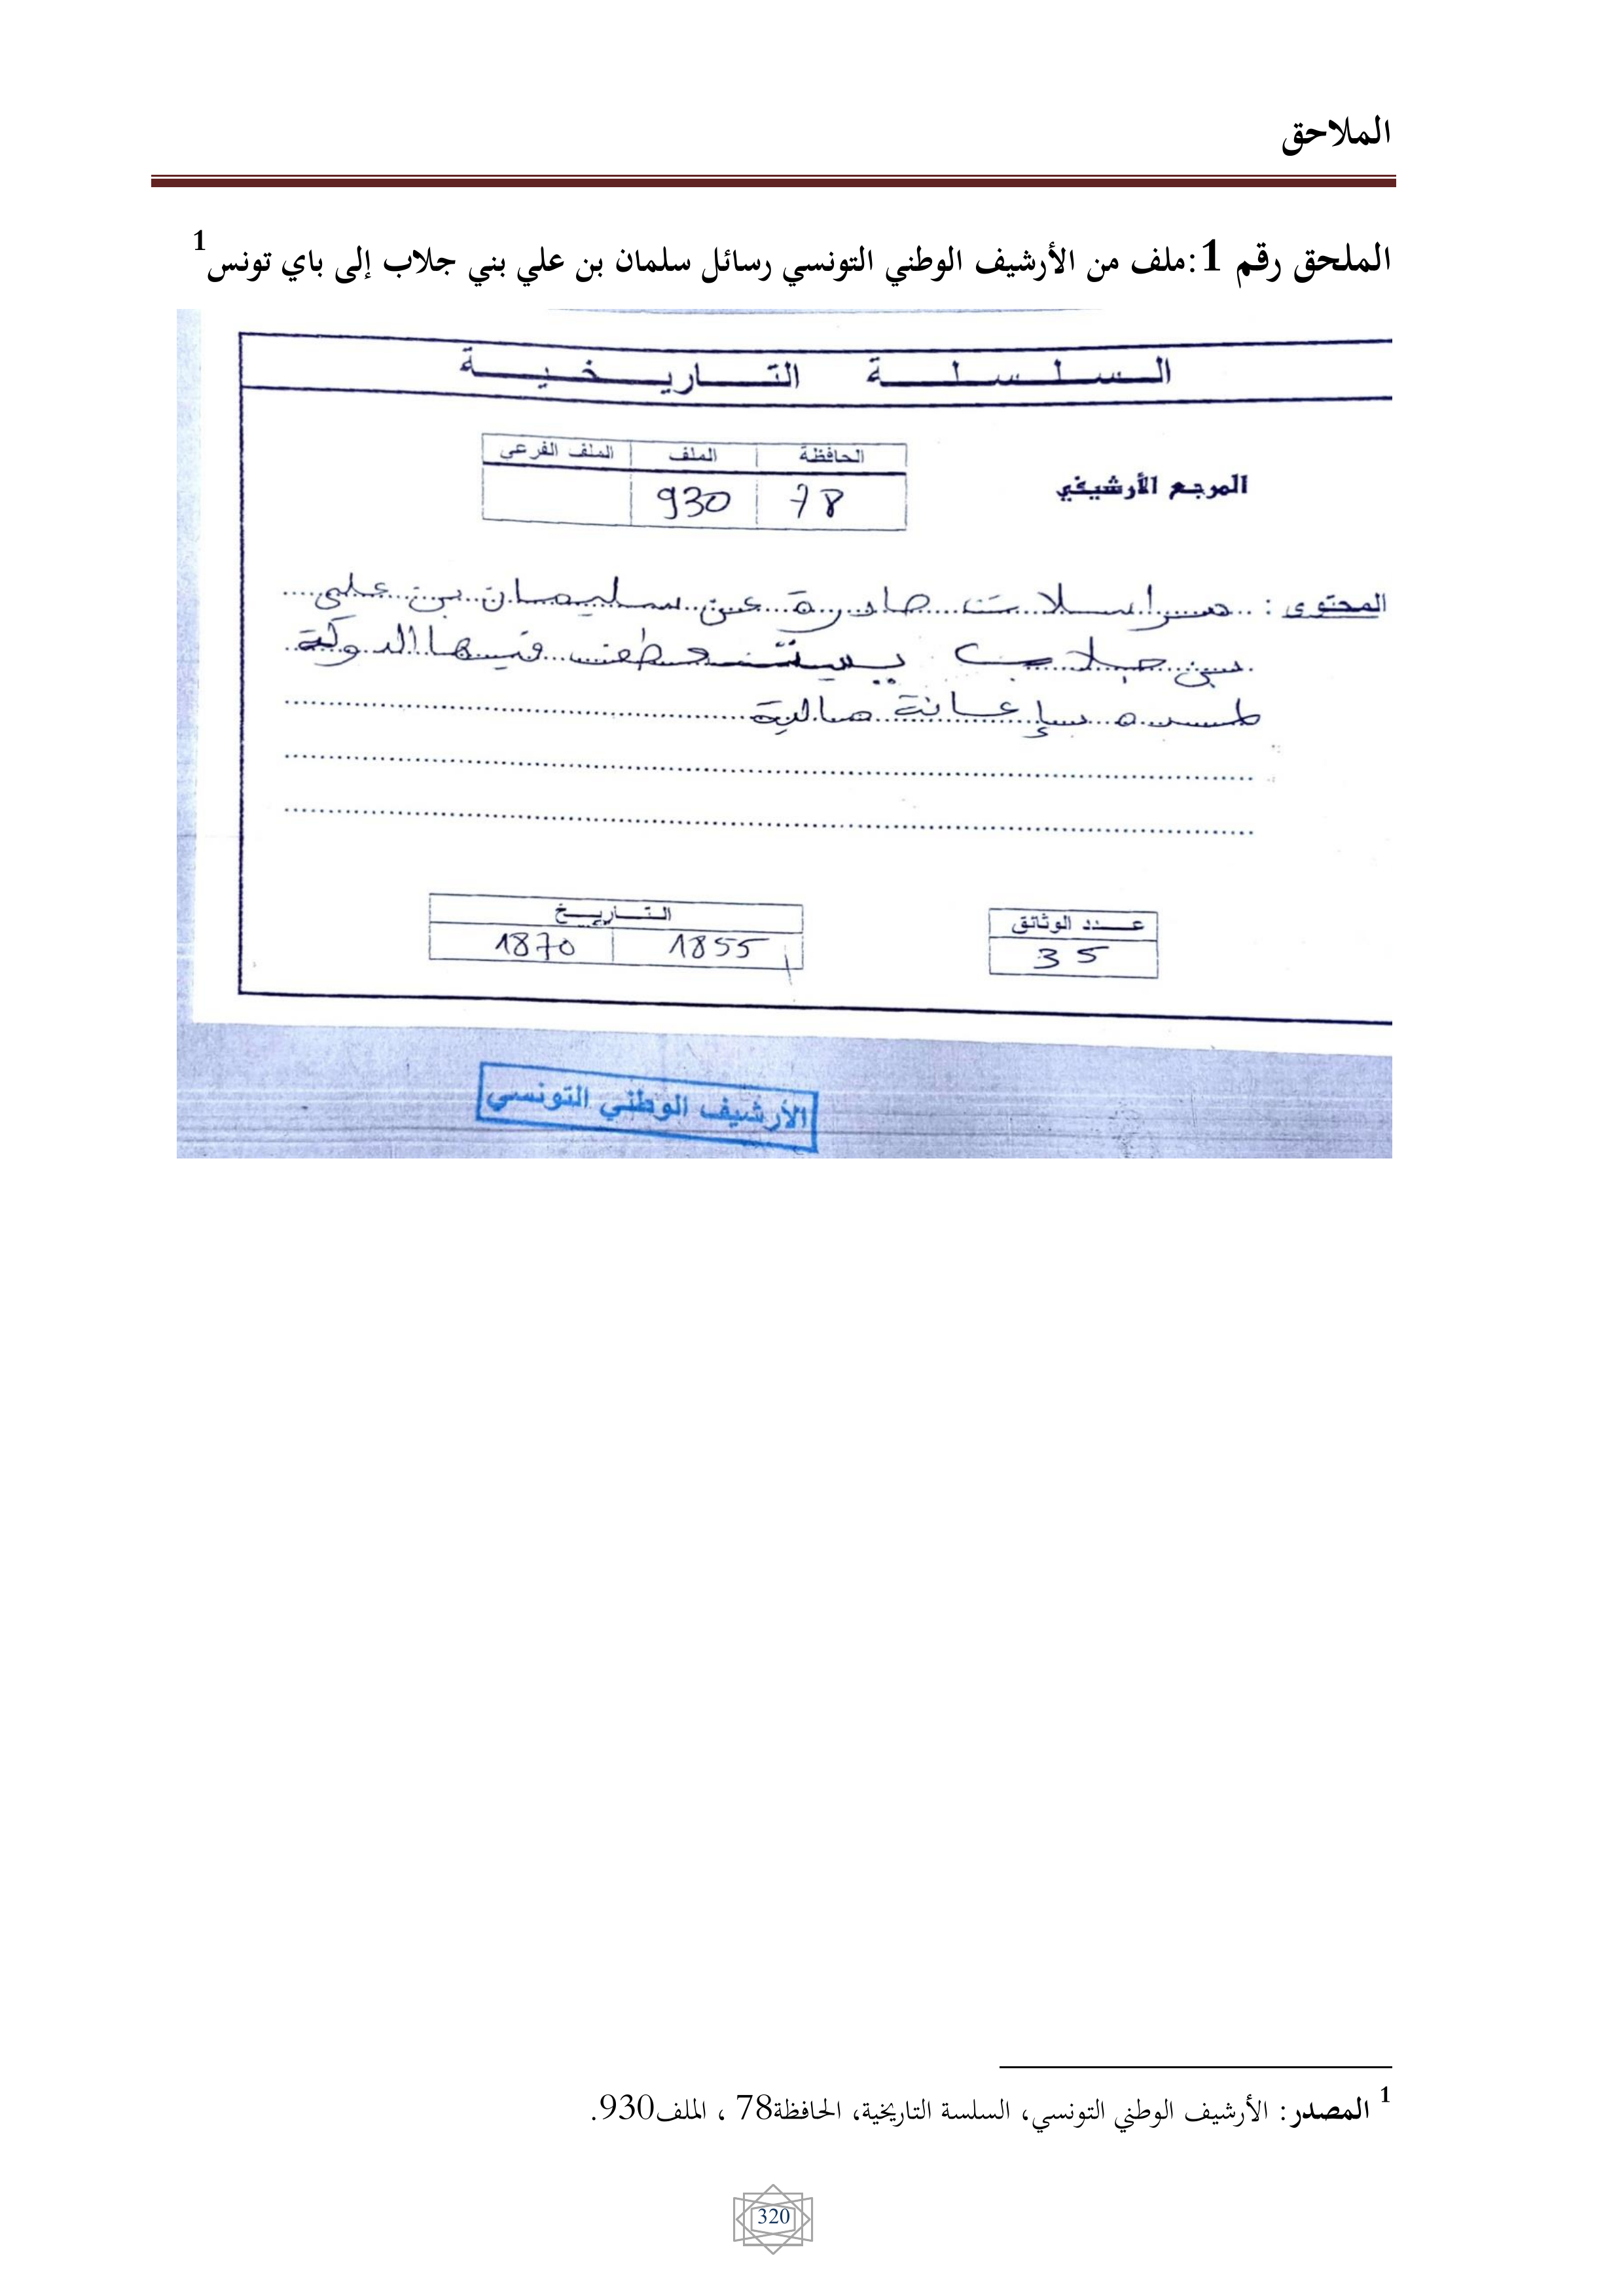 الملاحق
الملحق رقم 1:ملف من الأرشيف الوطني التونسي رسائل سلمان بن علي بني جلاب إلى باي تونس1
السلسلة التاريخية
الحافظة الملف الملف الفرعي
المرجع الأرشيفي
78 930
المحتوى : مراسلات صادرة عن سليمان بن علي
بن جلاب يستعطف فيها الدولة
بإعانة مالية
عدد الوثائق التاريخ
35 1855 1870
الأرشيف الوطني التونسي
1 المصدر: الأرشيف الوطني التونسي، السلسة التاريخية، الحافظة78 ، الملف930.
320